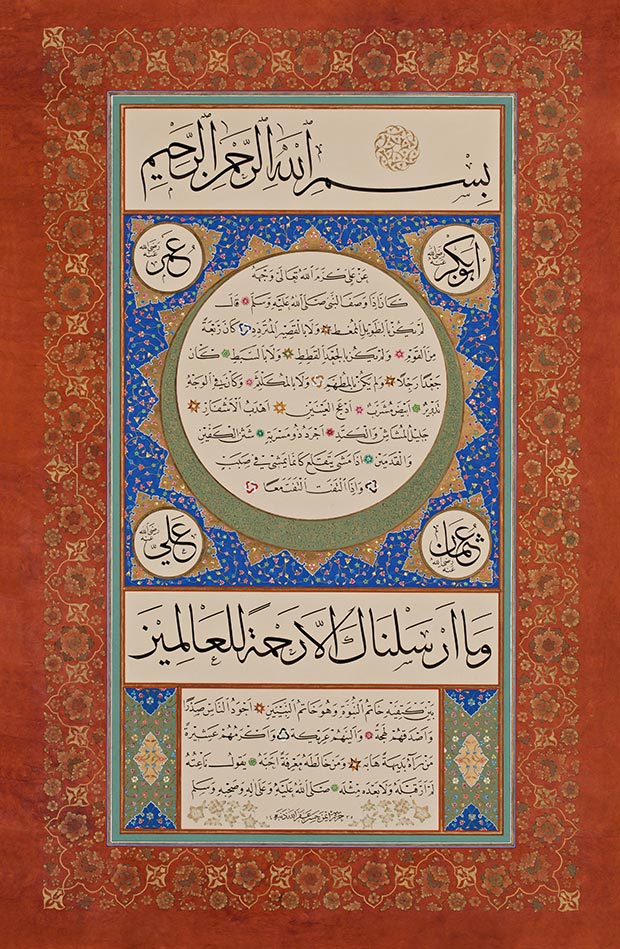 بِسْمِ اللهِ الرَّحْمٰنِ الرَّحِيمِ
ابوبكر رضي الله عنه
عمر رضي الله عنه
عن علي كرم الله تعالى وجهه
كان اذا وصف النبي صلى الله عليه وسلم قال
لم يكن بالطويل الممغط ولا بالقصير المتردد كان ربعة
من القوم ولم يكن بالجعد القطط ولا بالسبط كان
جعدا رجلا ولم يكن بالمطهم ولا بالمكلثم وكان في الوجه
تدوير ابيض مشرب ادعج العينين اهدب الاشفار
جليل المشاش والكتد اجرد ذو مسربة شثن الكفين
والقدمين اذا مشى يتقلع كانما يمشي في صبب
واذا التفت التفت معا
عثمان رضي الله عنه
علي رضي الله عنه
وما ارسلناك الا رحمة للعالمين
بين كتفيه خاتم النبوة وهو خاتم النبيين اجود الناس صدرا
واصدقهم لهجة والينهم عريكة واكرمهم عشيرة
من راه بديهة هابه ومن خالطه معرفة احبه يقول ناعته
لم ار قبله ولا بعده مثله صلى الله عليه وعلى اله وصحبه وسلم